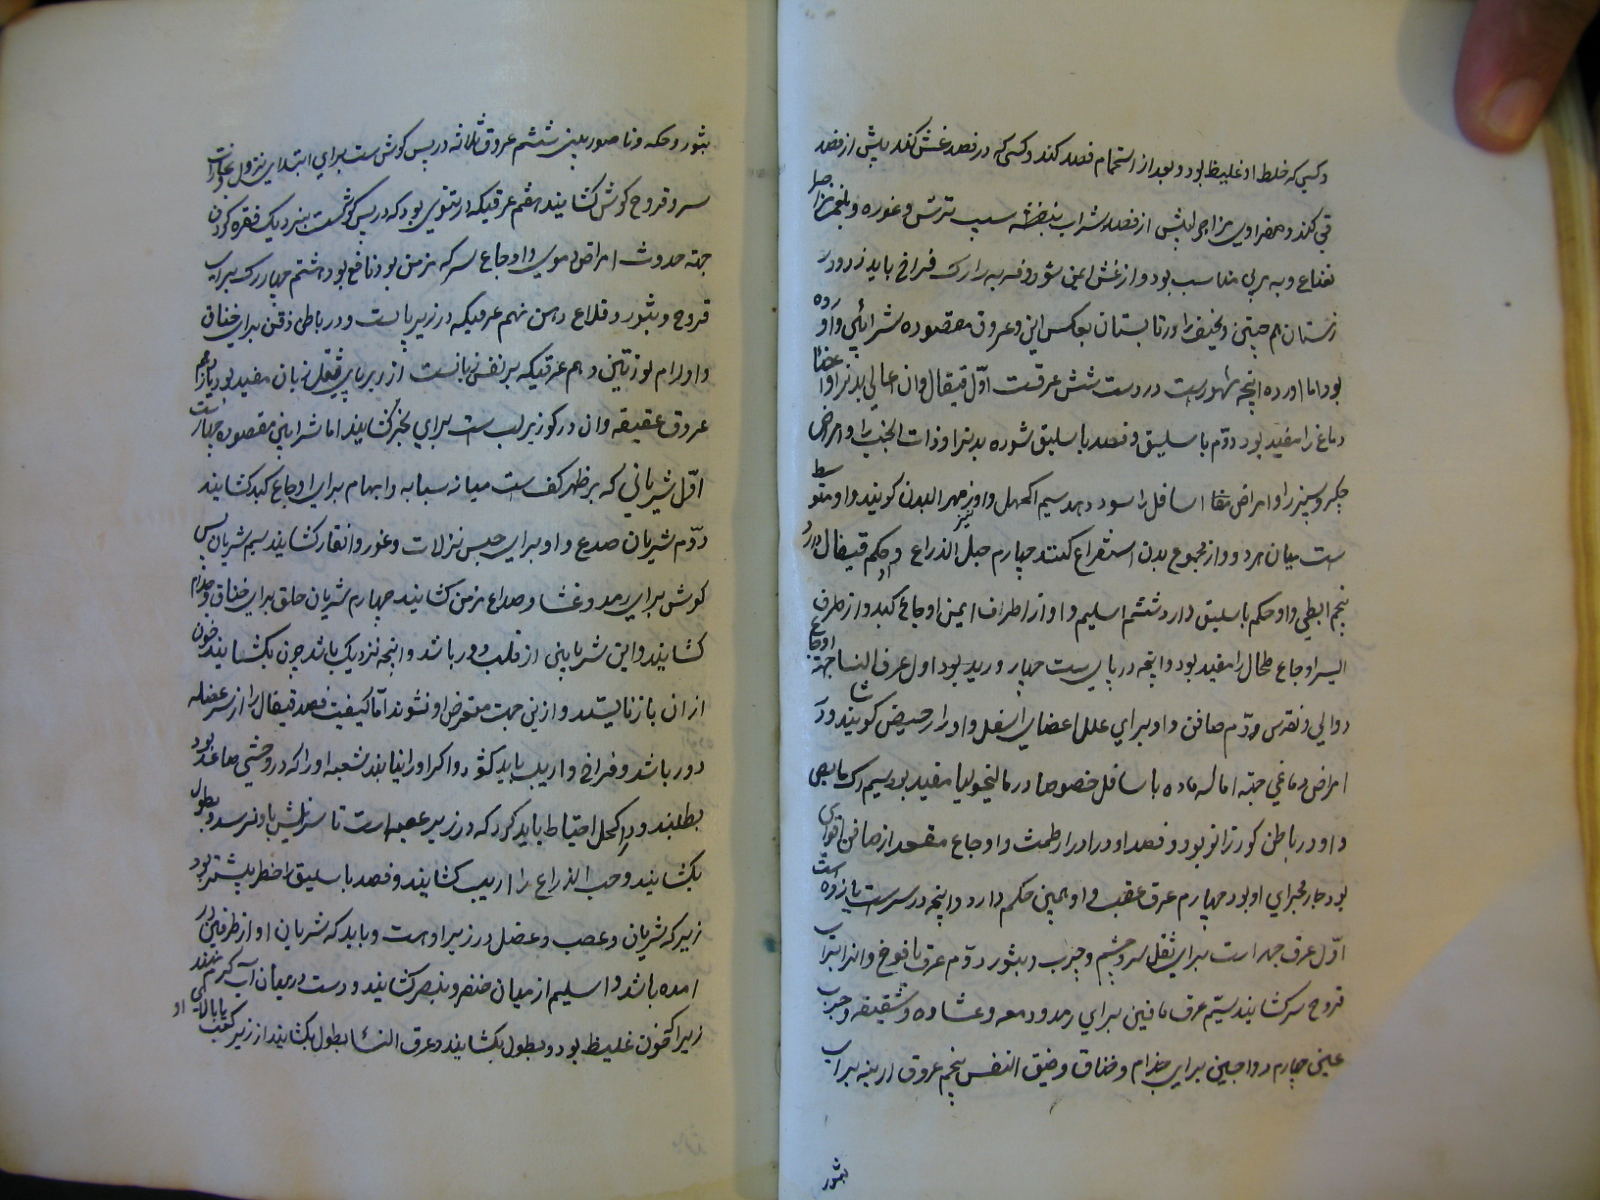 و کسی که خلط او غلیظ بود و بعد از استحمام فصد کند و کسی که در فصد غش کند پیش از فصد
قی کند و صفراوی مزاج را پیش از فصد شراب بنفشه سیب ترش و غوره و بلغمی مزاج را
نعناع و به مربی مناسب بود و از غش ایمن شود و فربه را رک فراخ باید زد و در
زمستان هم چنین و نحیف را و در تابستان بعکس این و عروق مفصوده شرائین و اورده
بود اما اورده انچه مشهورست در دست شش عرقست اول قیفال و ان اعالی بدن را و اعضا
دماغ را مفید بود دوم باسلیق و فصد باسلیق شوره بدن را و ذات الجنب را و امراض
جکر و سپرز را و امراض اسافل را سود دهد سیم اکحل و او را نهر البدن کویند و او متوسط
ست میان هر دو و از مجموع بدن استفراغ کنند چهارم حبل الذراع و او حکم قیفال دارد
پنجم ابطی و او حکم باسلیق دارد ششم اسلیم و او از اطراف ایمن اوجاع کبد و از طرف
ایسر اوجاع طحال را مفید بود و انچه در پای ست چهار ورید بود اول عرق النسا جهة اوجاع
دوالی و نقرس دوم صافن و او برای علل اعضای اسفل و ادرار حیض کشایند و در
امراض دماغی جهة اماله ماده باسافل خصوصا در مالیخولیا مفید بود سیم رک مابض
و او در باطن کو زانو بود و فصد او در ادرار طمث و اوجاع مقعد از صافن اقوی
بود جار مجرای او بود چهارم عرق عقب و او همین حکم دارد و انچه در سرست یازده است
اول عرق جبهه است برای ثقل سر و چشم و جرب و بثور دوم عرق یافوخ و انرا برای
قروح سر کشایند سیم عرق ماقین برای رمد و دمعه و غشاوه و شقیقه و جرب
عین چهارم دواجین برای جذام و خناق و ضیق النفس پنجم عروق ارنبه برای
بثور
بثور و حکه و ناصور بینی ششم عروق ثلاثه در پس کوش ست برای ابتدای نزول
سر و قروح کوش کشایند هفتم عرقیکه در پس کوشست بنزدیک فقره کردن
جهة حدوث امراض دموی و اوجاع سر که مزمن بود نافع بود هشتم چهار رک برای
قروح و بثور و قلاع دهن نهم عرقیکه در زیر زبانست و در باطن ذقن برای خناق
و اورام لوزتین دهم عرقیکه بر نفس زبانست از زیر برای ثقل زبان مفید بود یازدهم
عروق عنفقه و ان در کو زیر لب ست برای بخر کشایند اما شرائین مفصوده چهارست
اول شریانی که بر ظهر کف ست میانه سبابه و ابهام برای اوجاع کبد کشایند
دوم شریان صدغ و او برای حبس نزلات و غور و انتشار کشایند سیم شریان پس
کوش برای رمد و غشا و صداع مزمن کشایند چهارم شریان حلق برای خناق و جذام
کشایند و این شرائین از قلب دور باشد و انچه نزدیک باشد چون بکشایند خون
ازان باز نایستد و ازین جهت متعرض او نشوند اما کیفیت فصد قیفال را از سر عضله
دور باشد و فراخ و اریب باید کشود و اکر او را نیابند شعبه او را که در وحشی صاعد بود
بطلبند و در اکحل احتیاط باید کرد که در زیر عصبه است تا سر نیش باو نرسد و بطول
بکشایند و حبل الذراع را اریب کشایند و فصد باسلیق اخطر بیشتر بود
زیرکه شریان و عصب و عضل در زیر اوست و باید که شریان او از طرفین در
امده باشد و اسلیم از میان خنصر و بنصر کشایند و دست در میان آب کرم نهند
زیرا که خون غلیظ بود و بطول بکشایند و عرق النسا بطول بکشایند از زیر کعب یا بالای او